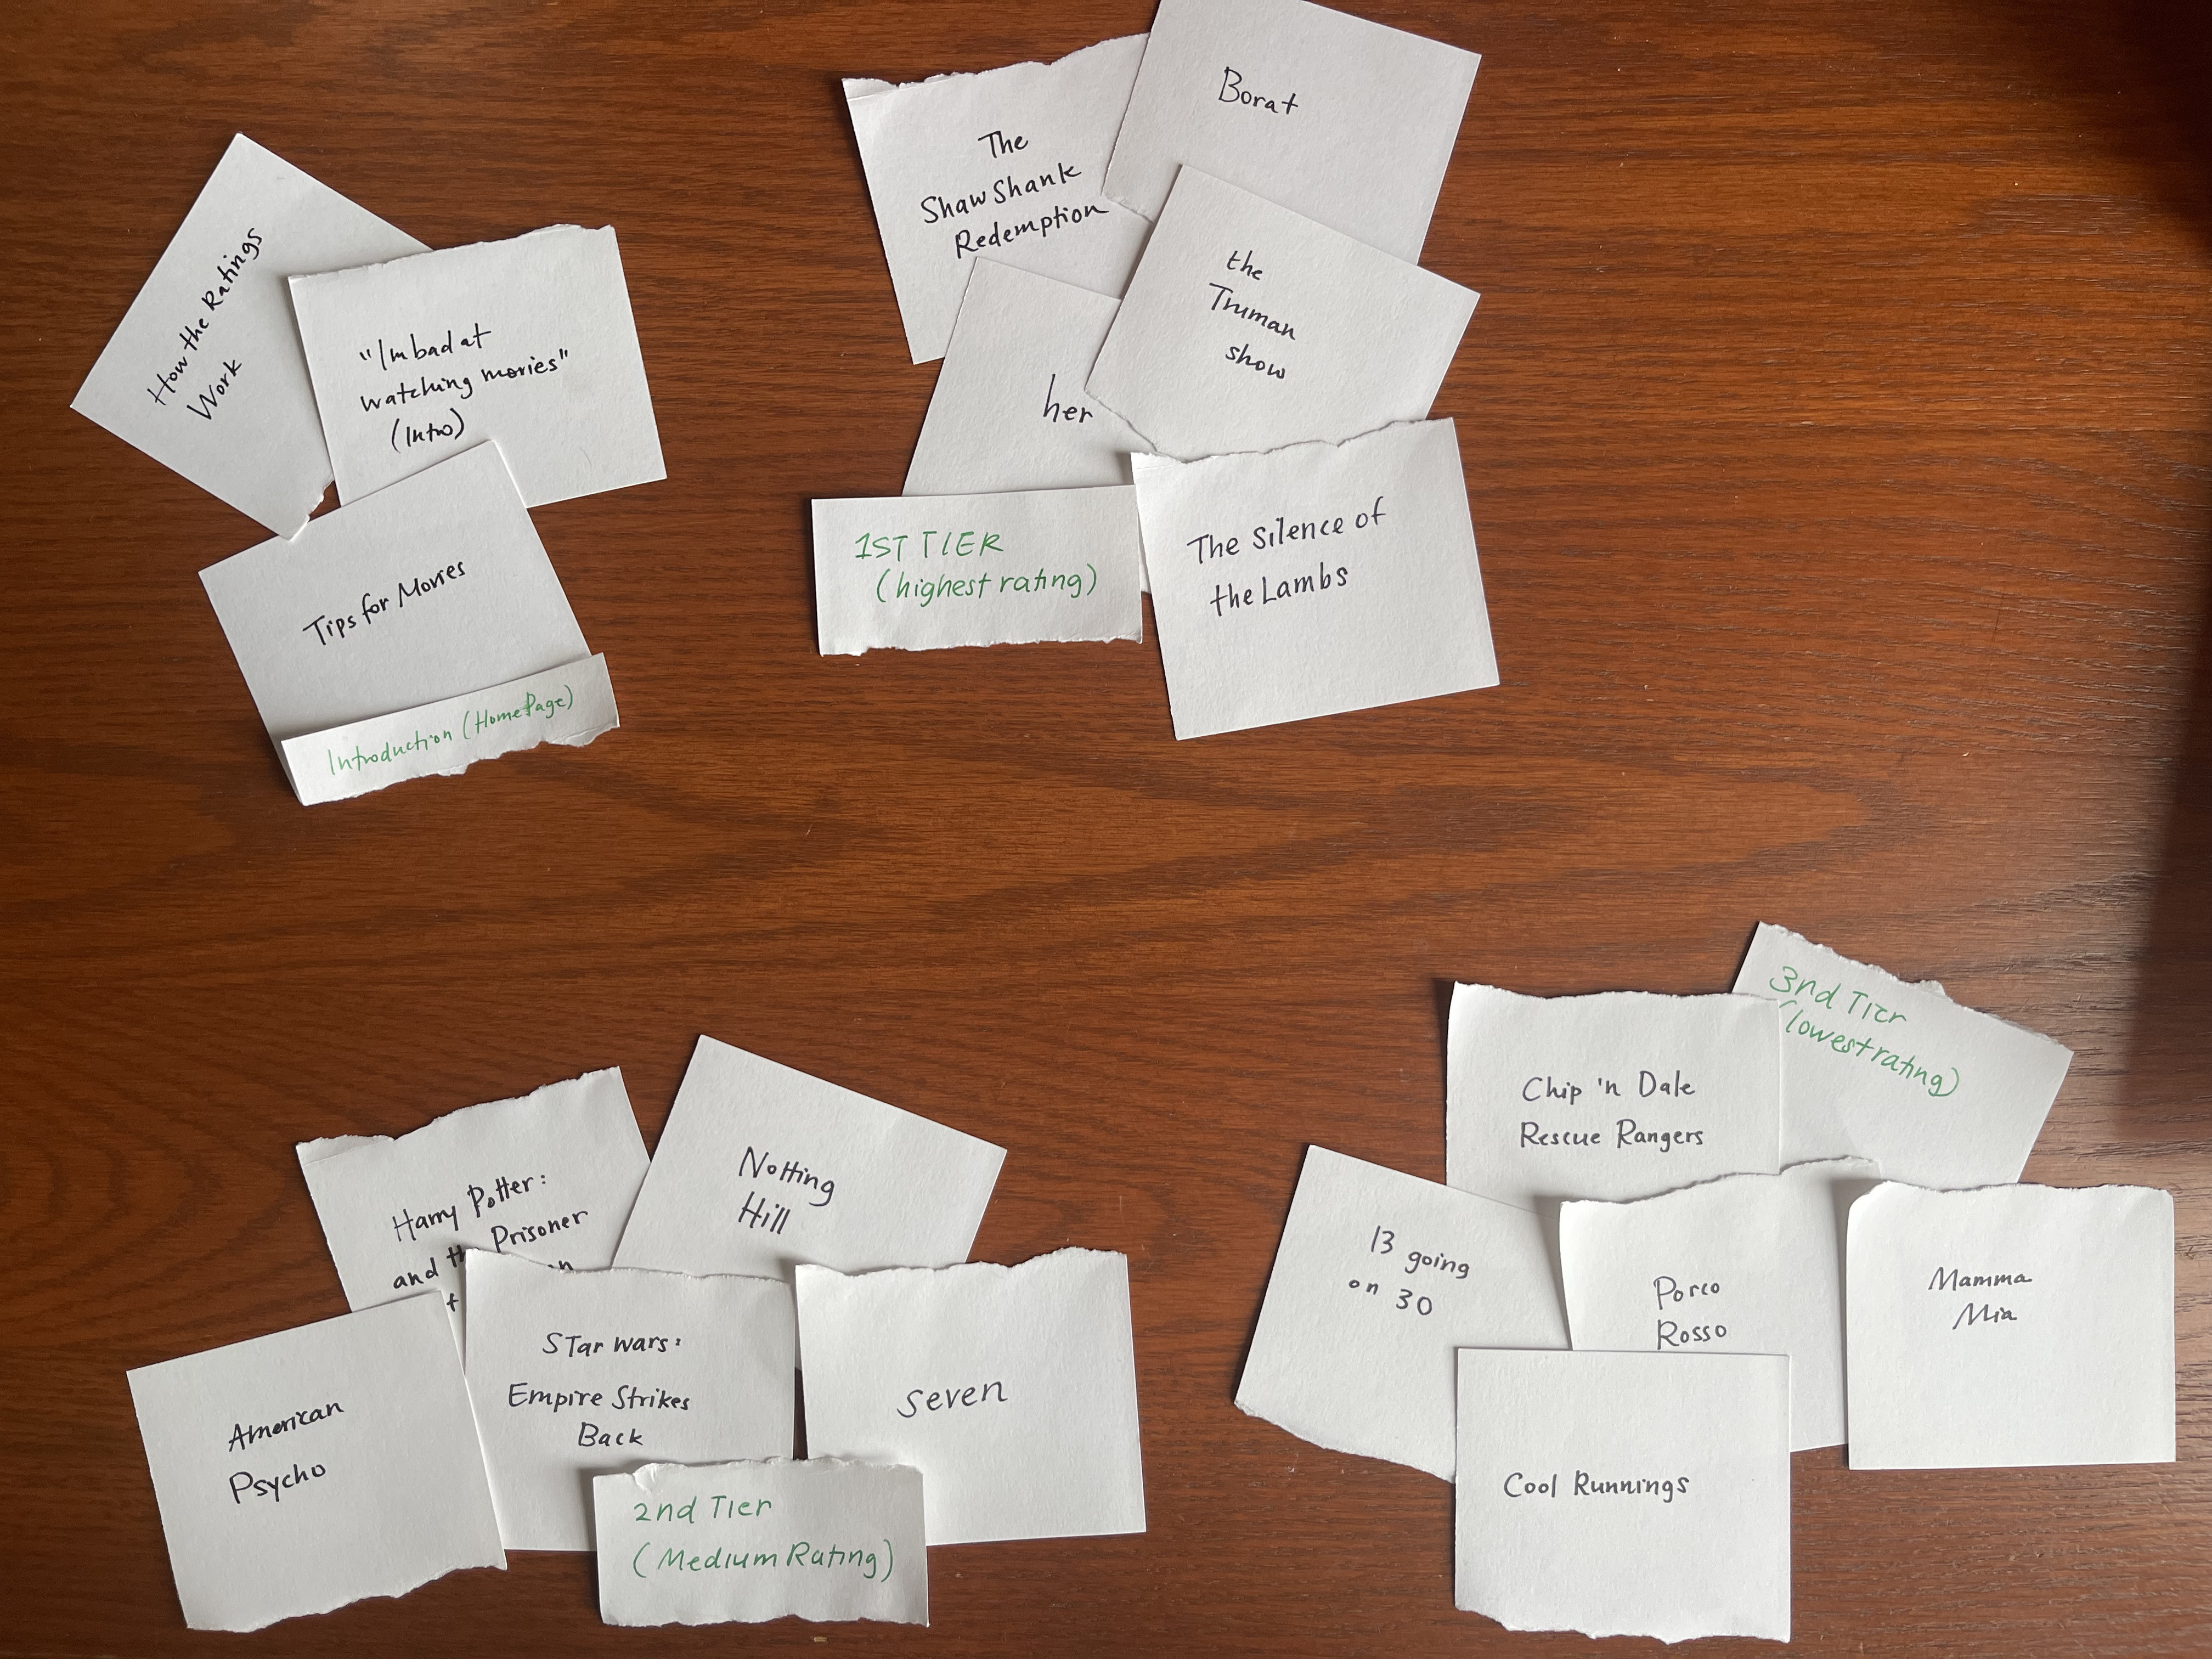 How the Ratings
Work
"I'm bad at
watching movies"
(Intro)
Tips for Movies
Introduction (HomePage)
The
ShawShank
Redemption
Borat
the
Truman
show
her
1ST TIER
(highest rating)
The Silence of
the Lambs
Harry Potter:
and th Prisoner
Notting
Hill
American
Psycho
STar wars:
Empire Strikes
Back
seven
2nd Tier
(Medium Rating)
3nd Tier
(lowest rating)
Chip 'n Dale
Rescue Rangers
13 going
on 30
Porco
Rosso
Mamma
Mia
Cool Runnings